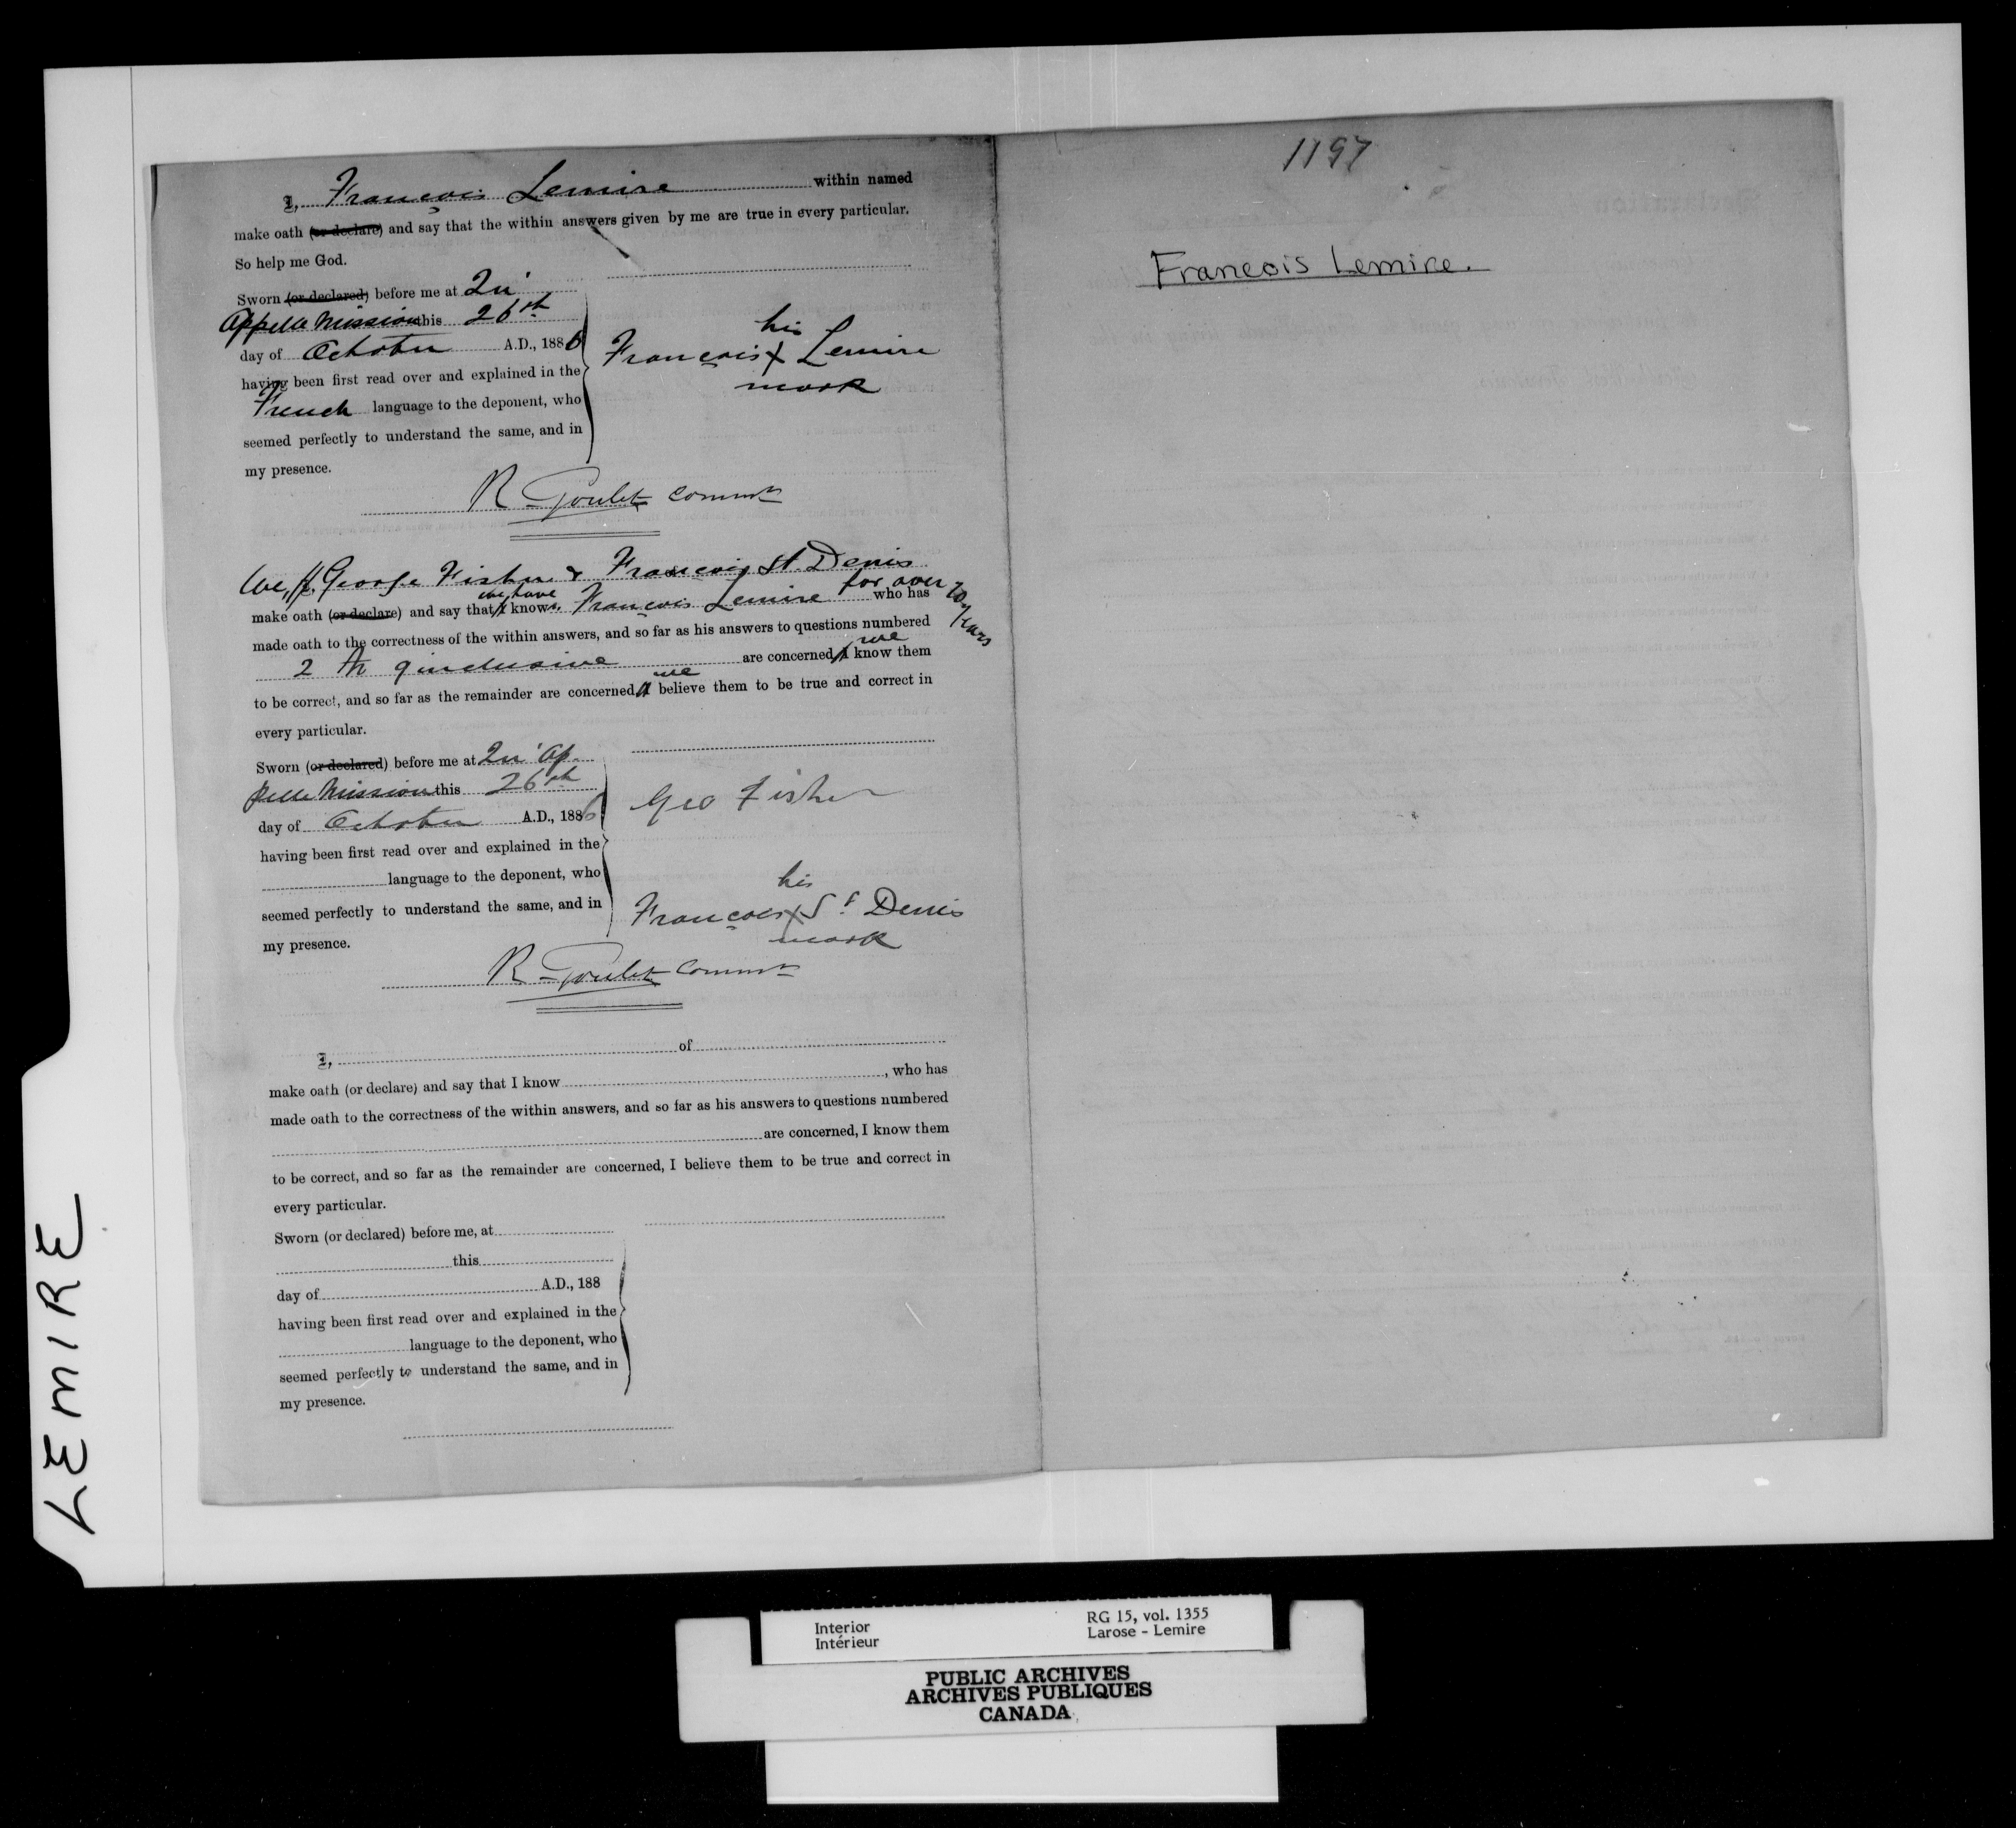 I, François Lemire within named
make oath (or declare) and say that the within answers given by me are true in every particular.
So help me God.
Sworn (or declared) before me at Qu'
Appelle Mission this 26th
day of October A.D., 1886
having been first read over and explained in the
French language to the deponent, who
seemed perfectly to understand the same, and in
my presence.
his
François X Lemire
mark
R Goulet Commr
We, I, George Fisher & François St. Denis
for over 20 years
we have
make oath (or declare) and say that I know François Lemire who has
made oath to the correctness of the within answers, and so far as his answers to questions numbered
we
2 to 9 inclusive are concerned, I know them
we
to be correct, and so far as the remainder are concerned, I believe them to be true and correct in
every particular.
Sworn (or declared) before me at Qu'Ap-
pelle Mission this 26th
day of October A.D., 1886
having been first read over and explained in the
language to the deponent, who
seemed perfectly to understand the same, and in
my presence.
Geo Fisher
his
François X St Denis
mark
R Goulet Commr
I, of
make oath (or declare) and say that I know , who has
made oath to the correctness of the within answers, and so far as his answers to questions numbered
are concerned, I know them
to be correct, and so far as the remainder are concerned, I believe them to be true and correct in
every particular.
Sworn (or declared) before me, at
this
day of A.D., 188
having been first read over and explained in the
language to the deponent, who
seemed perfectly to understand the same, and in
my presence.
1197
Francois Lemire.
LEMIRE
Interior
Intérieur
RG 15, vol. 1355
Larose - Lemire
PUBLIC ARCHIVES
ARCHIVES PUBLIQUES
CANADA